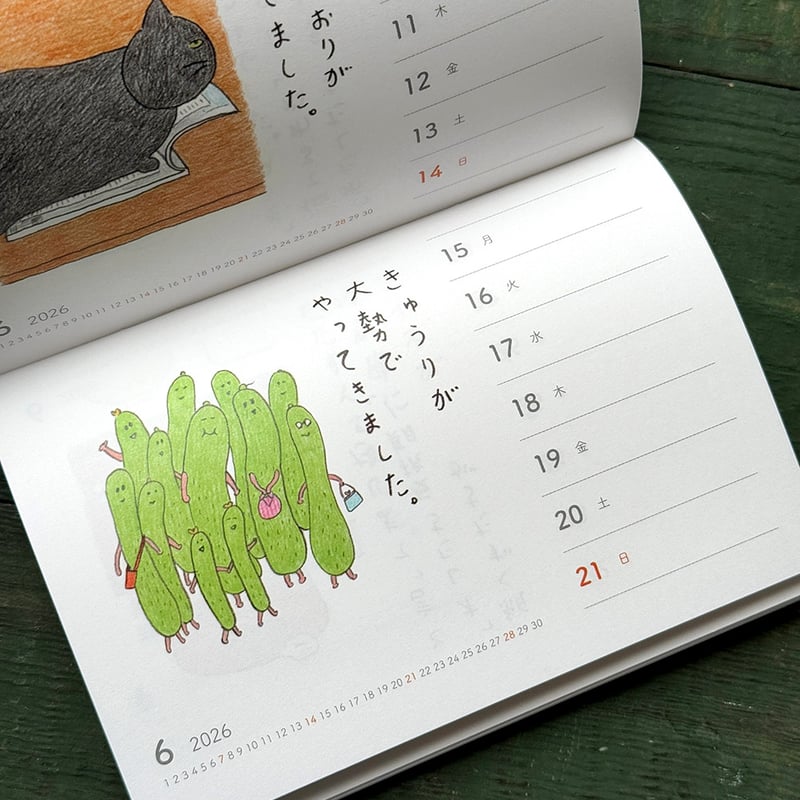 おりが
ました。
11 木
12 金
13 土
14 日
2026
1 2 3 4 5 6 7 8 9 10 11 12 13 14 15 16 17 18 19 20 21 22 23 24 25 26 27 28 29 30
きゅうりが
大勢で
やってきました。
15 月
16 火
17 水
18 木
19 金
20 土
21 日
6 2026
1 2 3 4 5 6 7 8 9 10 11 12 13 14 15 16 17 18 19 20 21 22 23 24 25 26 27 28 29 30